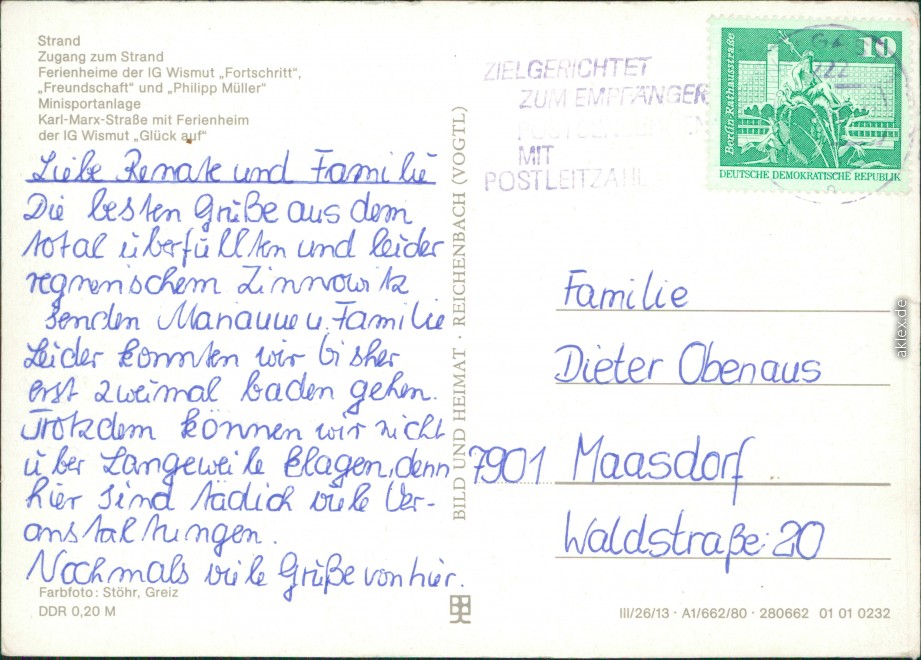 Strand
Zugang zum Strand
Ferienheime der IG Wismut „Fortschritt“,
„Freundschaft“ und „Philipp Müller“
Minisportanlage
Karl-Marx-Straße mit Ferienheim
der IG Wismut „Glück auf“
Liebe Renate und Familie
Die besten Grüße aus dem
total überfüllten und leider
regnerischem Zinnowitz
senden Marianne u. Familie
Leider konnten wir bisher
erst zweimal baden gehen.
Trotzdem können wir nicht
über Langeweile klagen, denn
hier sind täglich viele Ver-
anstaltungen.
Nochmals viele Grüße von hier.
Farbfoto: Stöhr, Greiz
DDR 0,20 M
BILD UND HEIMAT · REICHENBACH (VOGTL)
ZIELGERICHTET
ZUM EMPFÄNGER
MIT
POSTLEITZAHL
10
Berlin-Rathausstraße
DEUTSCHE DEMOKRATISCHE REPUBLIK
222
Familie
Dieter Obenaus
7901 Maasdorf
Waldstraße: 20
III/26/13 · A1/662/80 · 280662 01 01 0232
aklex.de